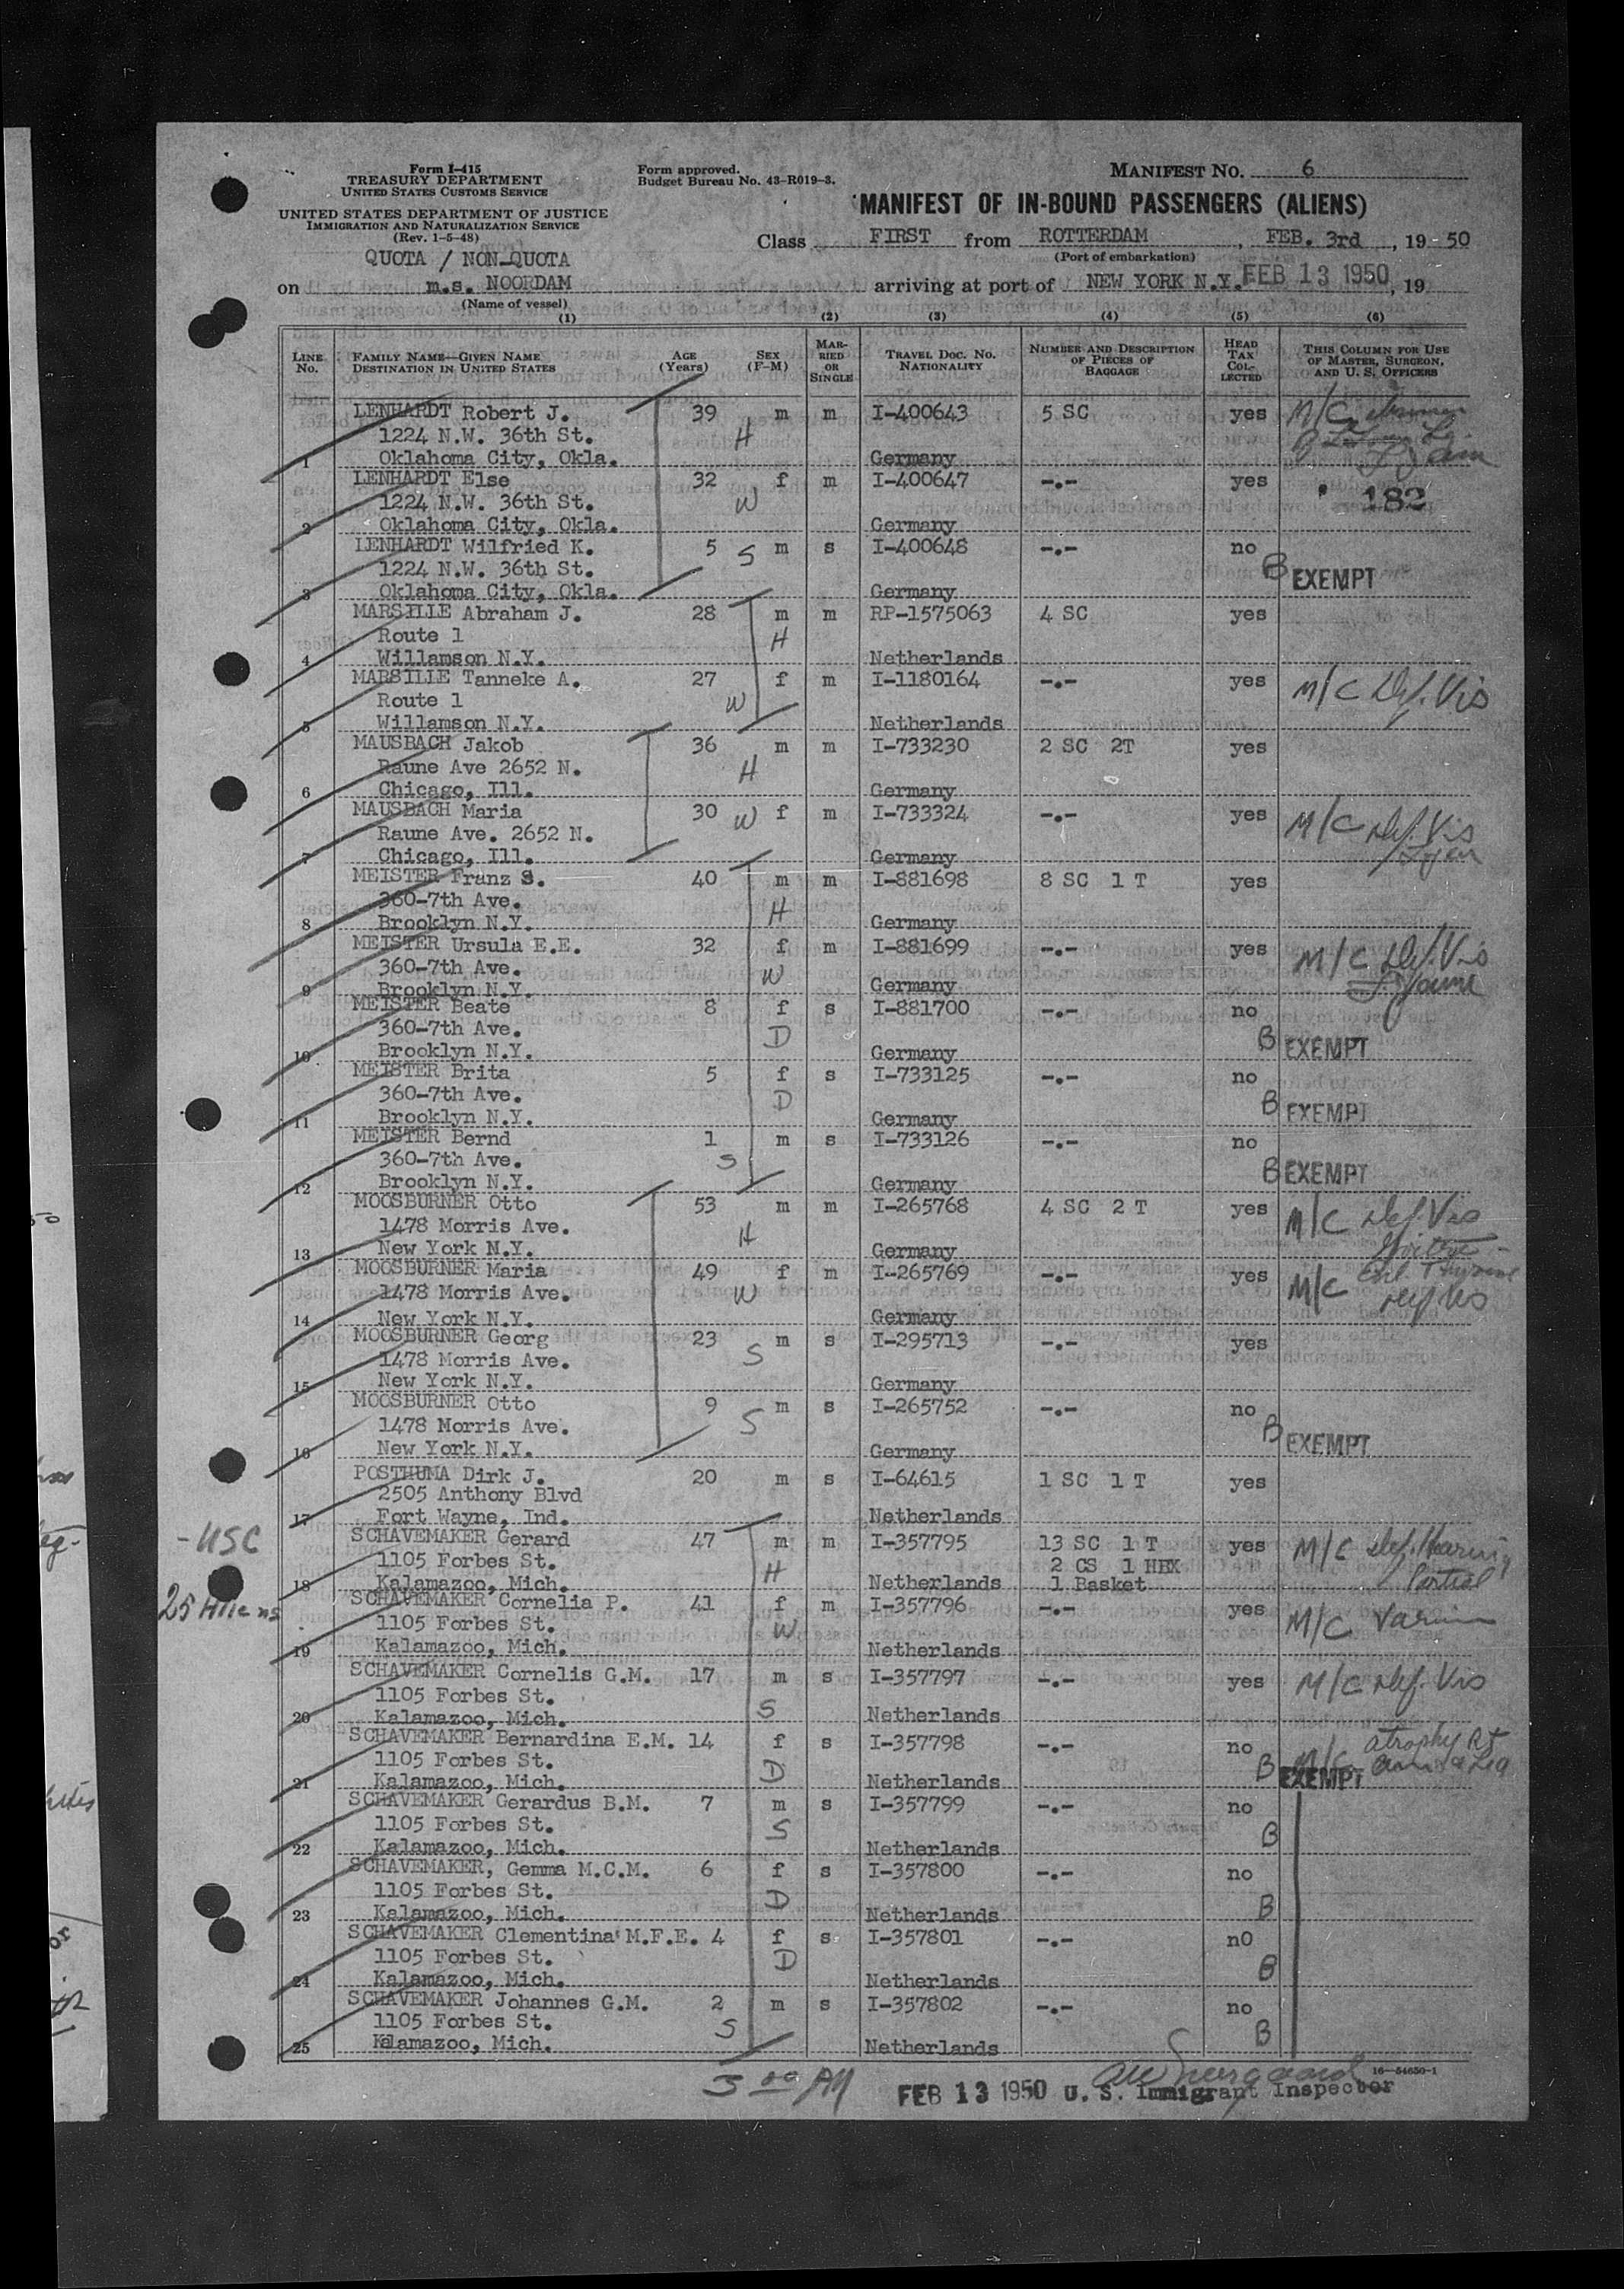 Form I-415
TREASURY DEPARTMENT
UNITED STATES CUSTOMS SERVICE
UNITED STATES DEPARTMENT OF JUSTICE
IMMIGRATION AND NATURALIZATION SERVICE
(Rev. 1-5-48)
Form approved.
Budget Bureau No. 43-R019-3.
MANIFEST NO. 6
MANIFEST OF IN-BOUND PASSENGERS (ALIENS)
Class FIRST from ROTTERDAM, FEB. 3rd, 19 50
(Port of embarkation)
QUOTA / NON-QUOTA
on m.s. NOORDAM arriving at port of NEW YORK N.Y. FEB 13 1950, 19
(Name of vessel)
(1) (2) (3) (4) (5) (6)
LINE NO. FAMILY NAME—GIVEN NAME DESTINATION IN UNITED STATES AGE (Years) SEX (F-M) MARRIED OR SINGLE TRAVEL DOC. NO. NATIONALITY NUMBER AND DESCRIPTION OF PIECES OF BAGGAGE HEAD TAX COLLECTED THIS COLUMN FOR USE OF MASTER, SURGEON, AND U. S. OFFICERS
LENHARDT Robert J. 39 m m I-400643 5 SC yes M/C
1224 N.W. 36th St. H
1 Oklahoma City, Okla. Germany
LENHARDT Else 32 f m I-400647 -.- yes
1224 N.W. 36th St. W 182
2 Oklahoma City, Okla. Germany
LENHARDT Wilfried K. 5 S m s I-400648 -.- no
1224 N.W. 36th St. B EXEMPT
3 Oklahoma City, Okla. Germany
MARSILLE Abraham J. 28 m m RP-1575063 4 SC yes
Route 1 H
4 Willamson N.Y. Netherlands
MARSILLE Tanneke A. 27 f m I-1180164 -.- yes M/C Def. Vis
Route 1 W
5 Willamson N.Y. Netherlands
MAUSBACH Jakob 36 m m I-733230 2 SC 2T yes
Raune Ave 2652 N. H
6 Chicago, Ill. Germany
MAUSBACH Maria 30 W f m I-733324 -.- yes M/C Def. Vis
Raune Ave. 2652 N.
7 Chicago, Ill. Germany
MEISTER Franz S. 40 m m I-881698 8 SC 1 T yes
360-7th Ave. H
8 Brooklyn N.Y. Germany
MEISTER Ursula E.E. 32 f m I-881699 -.- yes M/C Def. Vis
360-7th Ave. W
9 Brooklyn N.Y. Germany
MEISTER Beate 8 f s I-881700 -.- no
360-7th Ave. D B EXEMPT
10 Brooklyn N.Y. Germany
MEISTER Brita 5 f s I-733125 -.- no
360-7th Ave. D B EXEMPT
11 Brooklyn N.Y. Germany
MEISTER Bernd 1 m s I-733126 -.- no
360-7th Ave. S B EXEMPT
12 Brooklyn N.Y. Germany
MOOSBURNER Otto 53 m m I-265768 4 SC 2 T yes M/C Def. Vis
1478 Morris Ave. H
13 New York N.Y. Germany
MOOSBURNER Maria 49 f m I-265769 -.- yes M/C
1478 Morris Ave. W
14 New York N.Y. Germany
MOOSBURNER Georg 23 m s I-295713 -.- yes
1478 Morris Ave. S
15 New York N.Y. Germany
MOOSBURNER Otto 9 m s I-265752 -.- no
1478 Morris Ave. S B EXEMPT
16 New York N.Y. Germany
POSTHUMA Dirk J. 20 m s I-64615 1 SC 1 T yes
2505 Anthony Blvd
17 Fort Wayne, Ind. Netherlands
- USC
SCHAVEMAKER Gerard 47 m m I-357795 13 SC 1 T yes M/C Def. Hearing
1105 Forbes St. H 2 CS 1 HBX Partial
18 Kalamazoo, Mich. Netherlands 1 Basket
25 Aliens
SCHAVEMAKER Cornelia P. 41 f m I-357796 -.- yes M/C
1105 Forbes St. W
19 Kalamazoo, Mich. Netherlands
SCHAVEMAKER Cornelis G.M. 17 m s I-357797 -.- yes M/C Def. Vis
1105 Forbes St. S
20 Kalamazoo, Mich. Netherlands
SCHAVEMAKER Bernardina E.M. 14 f s I-357798 -.- no atrophy Rt
1105 Forbes St. D B M/C arm & Leg
21 Kalamazoo, Mich. Netherlands EXEMPT
SCHAVEMAKER Gerardus B.M. 7 m s I-357799 -.- no
1105 Forbes St. S B
22 Kalamazoo, Mich. Netherlands
SCHAVEMAKER, Gemma M.C.M. 6 f s I-357800 -.- no
1105 Forbes St. D B
23 Kalamazoo, Mich. Netherlands
SCHAVEMAKER Clementina M.F.E. 4 f s I-357801 -.- nO
1105 Forbes St. D B
24 Kalamazoo, Mich. Netherlands
SCHAVEMAKER Johannes G.M. 2 m s I-357802 -.- no
1105 Forbes St. S B
25 Kalamazoo, Mich. Netherlands
16—54650-1
FEB 13 1950 U. S. Immigrant Inspector